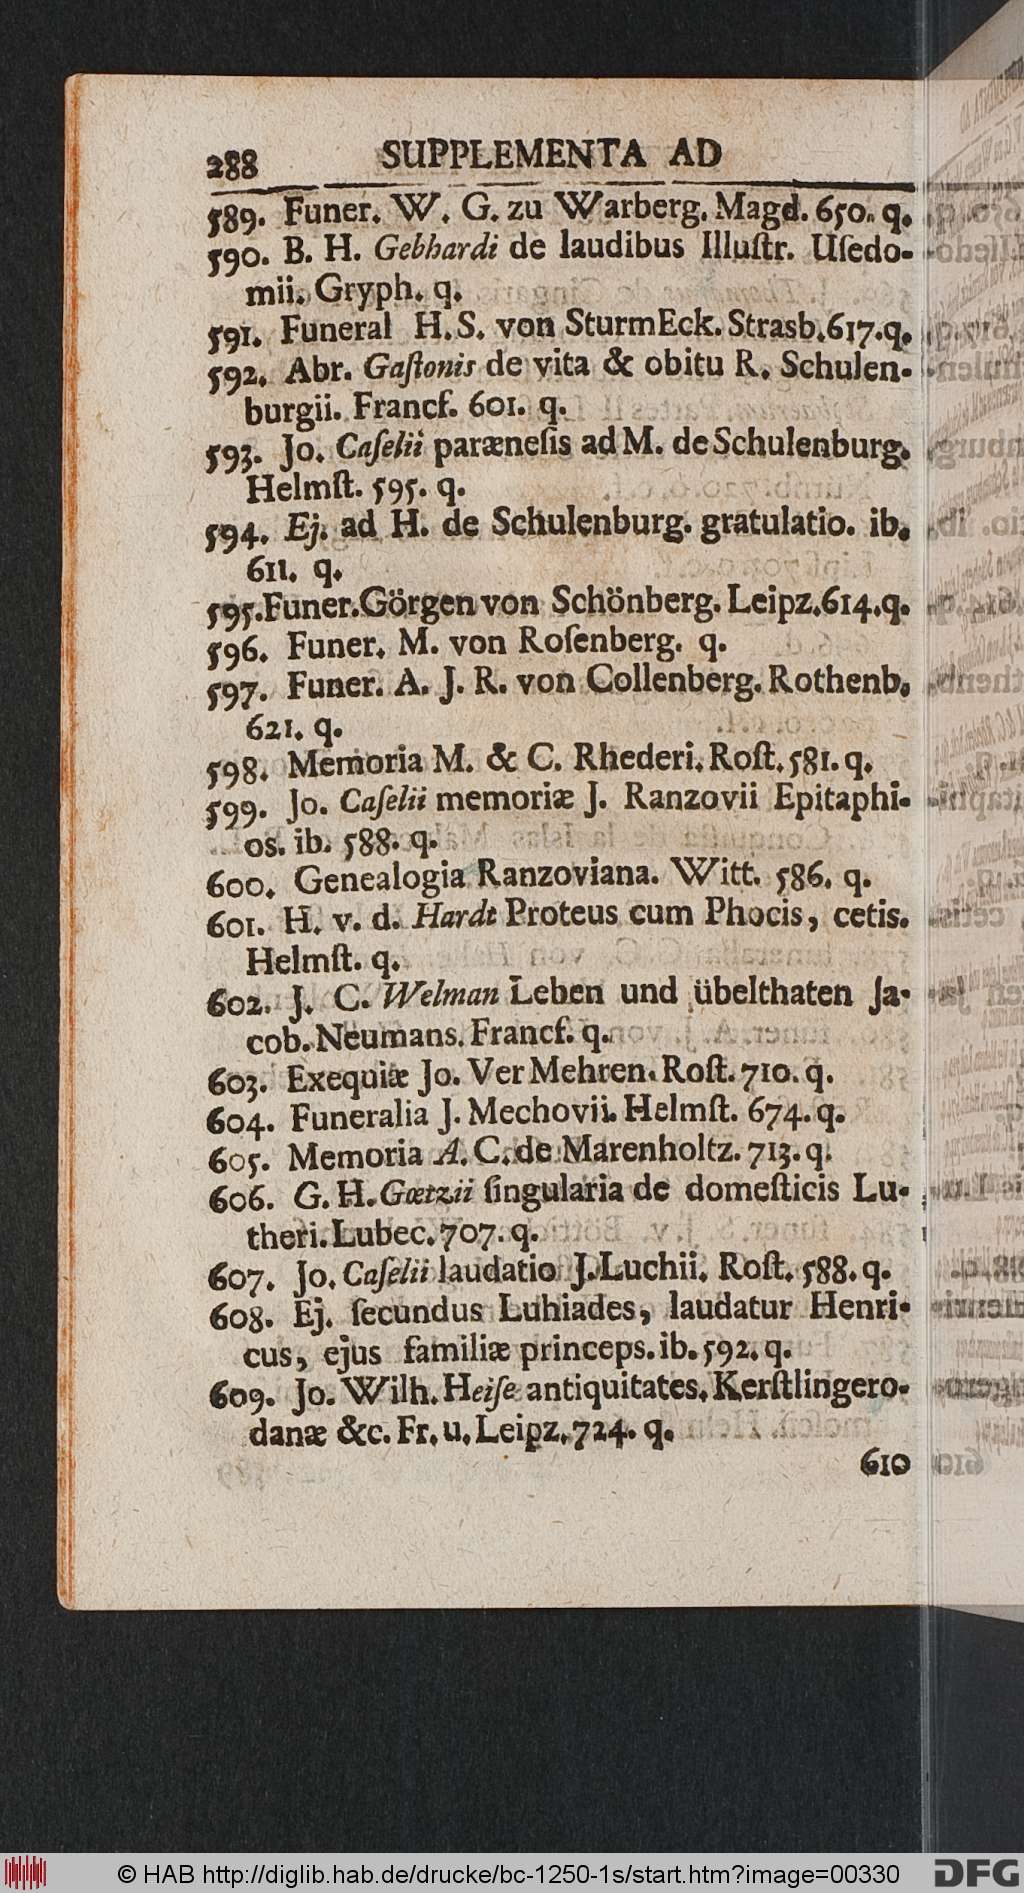 288 SUPPLEMENTA AD
589. Funer. W. G. zu Warberg. Magd. 650. q.
590. B. H. Gebhardi de laudibus Illuſtr. Uſedo-
mii. Gryph. q.
591. Funeral H.S. von SturmEck. Strasb. 617. q.
592. Abr. Gaſtonis de vita & obitu R. Schulen-
burgii. Francf. 601. q.
593. Jo. Caſelii paræneſis ad M. de Schulenburg.
Helmſt. 595. q.
594. Ej. ad H. de Schulenburg. gratulatio. ib.
611. q.
595. Funer. Görgen von Schönberg. Leipz. 614. q.
596. Funer. M. von Roſenberg. q.
597. Funer. A. J. R. von Collenberg. Rothenb.
621. q.
598. Memoria M. & C. Rhederi. Roſt. 581. q.
599. Jo. Caſelii memoriæ J. Ranzovii Epitaphi-
os. ib. 588. q.
600. Genealogia Ranzoviana. Witt. 586. q.
601. H. v. d. Hardt Proteus cum Phocis, cetis.
Helmſt. q.
602. J. C. Welman Leben und übelthaten Ja-
cob. Neumans. Francf. q.
603. Exequiæ Jo. Ver Mehren. Roſt. 710. q.
604. Funeralia J. Mechovii. Helmſt. 674. q.
605. Memoria A. C. de Marenholtz. 713. q.
606. G. H. Gœtzii ſingularia de domeſticis Lu-
theri. Lubec. 707. q.
607. Jo. Caſelii laudatio J. Luchii. Roſt. 588. q.
608. Ej. ſecundus Luhiades, laudatur Henri-
cus, ejus familiæ princeps. ib. 592. q.
609. Jo. Wilh. Heiſe antiquitates. Kerſtlingero-
danæ &c. Fr. u. Leipz. 724. q.
610
© HAB http://diglib.hab.de/drucke/bc-1250-1s/start.htm?image=00330
DFG